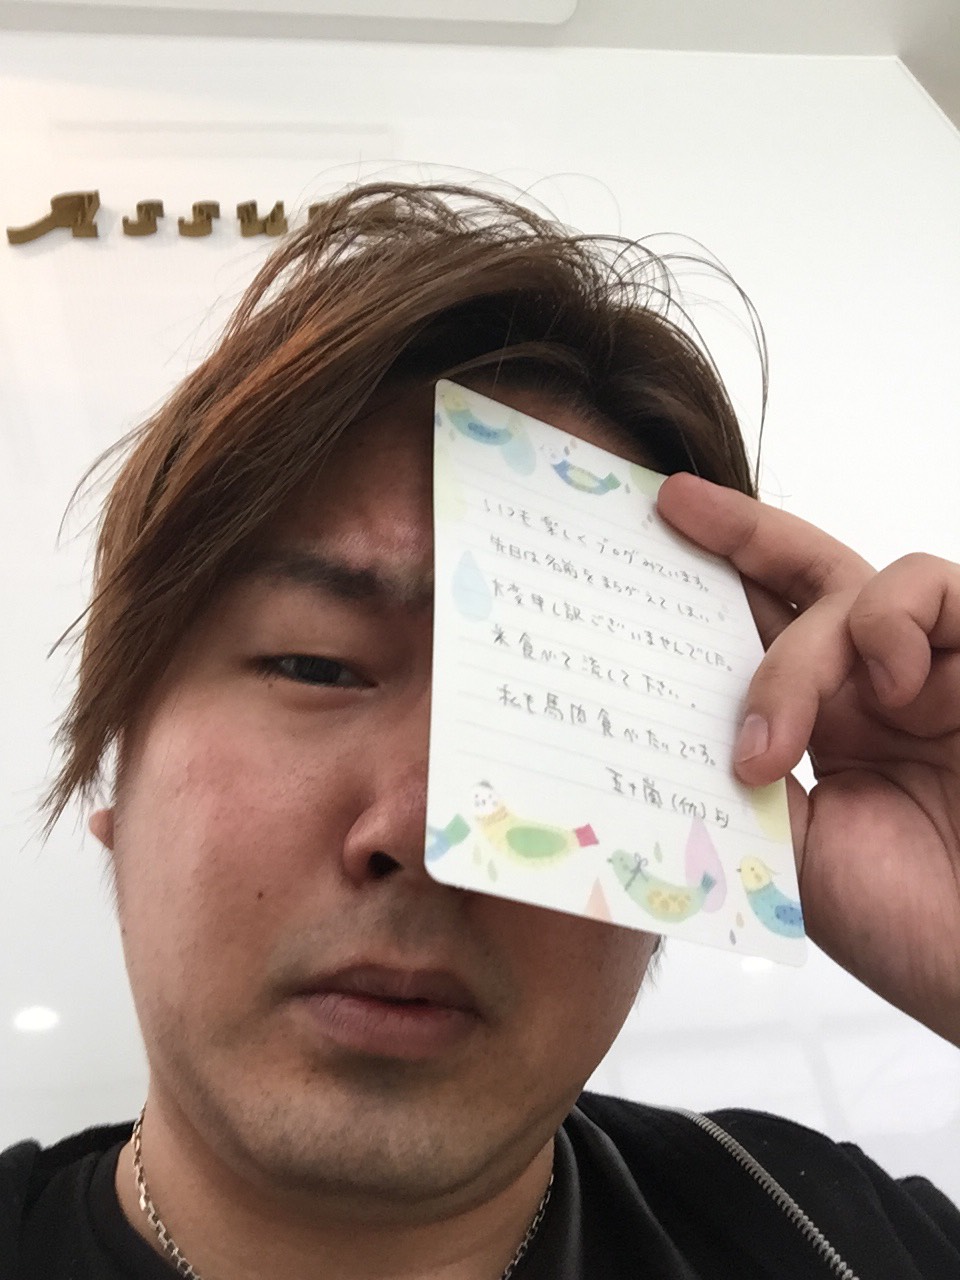 Assu
いつも楽しくブログみています。
先日は名前をまちがえてしまい
大変申し訳ございませんでした。
米食べて流して下さい。
私も馬肉食べたいです。
五十嵐(仮)より